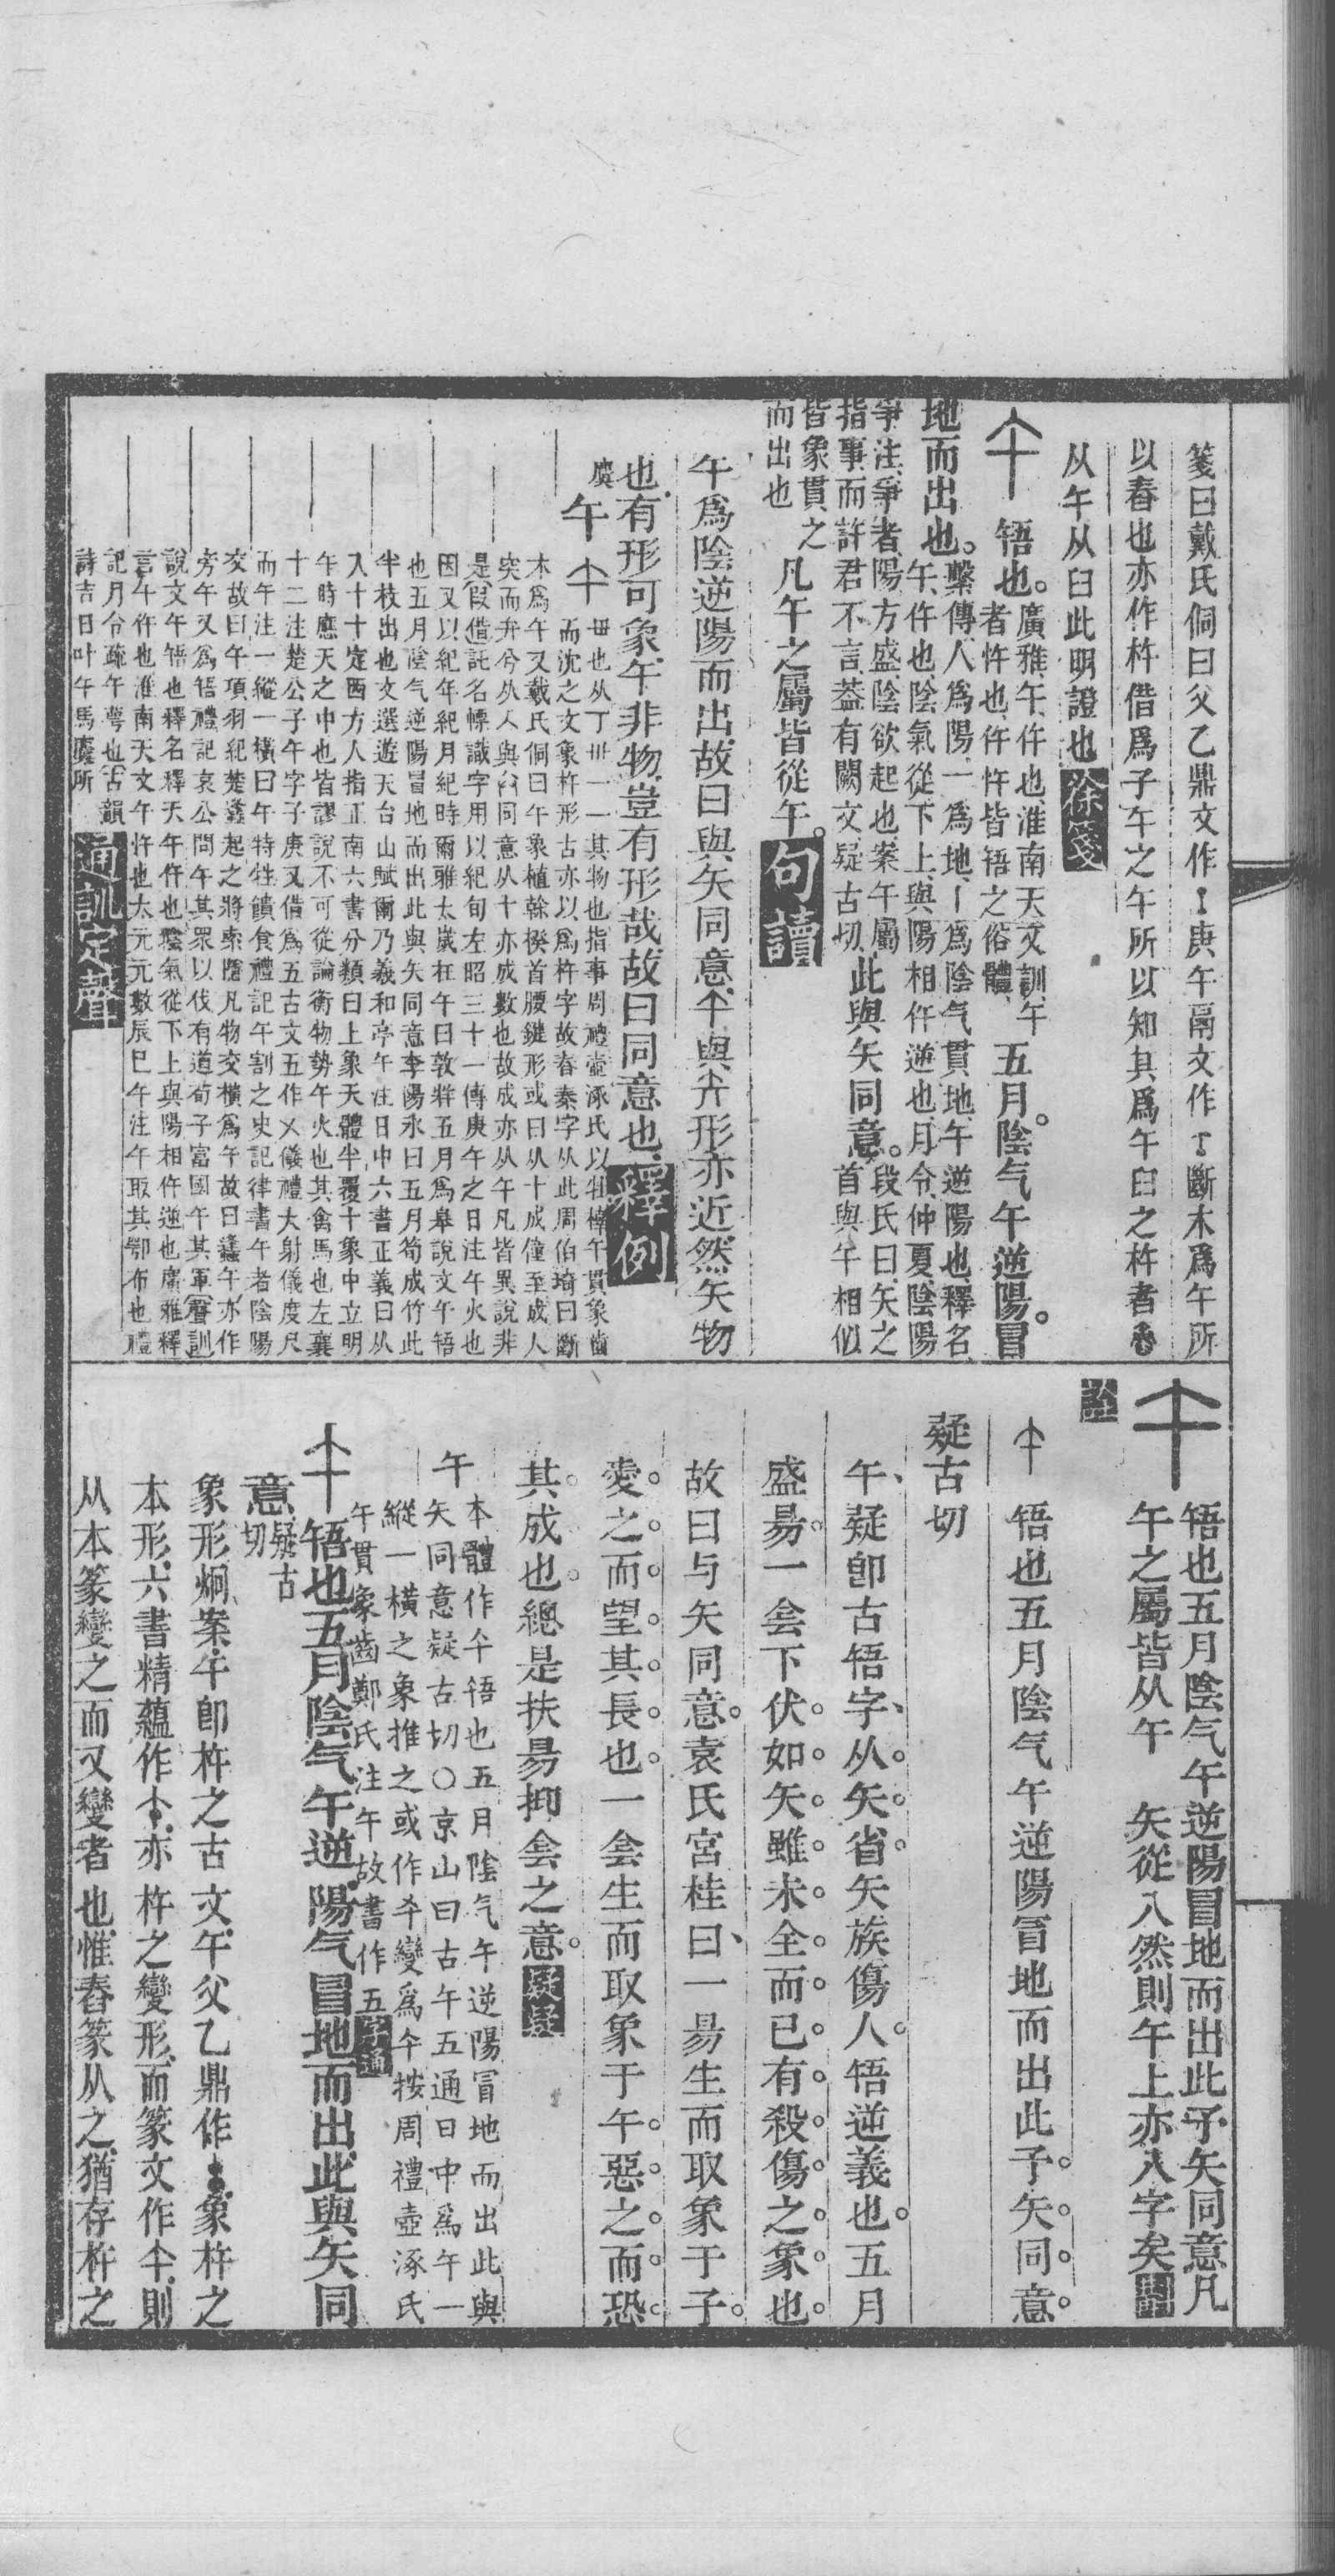 箋曰戴氏侗曰父乙鼎文作庚午鬲文作斷木爲午所
以舂也亦作杵借爲子午之午所以知其爲午臼之杵者
从午从臼此明證也徐箋
午 啎也。廣雅、午、仵也、淮南天文訓、午
者忤也、仵忤皆啎之俗體、五月。陰气午逆陽。冒
地而出也。繫傳、人爲陽、一爲地、丨爲陰气貫地、午逆陽也、釋名、
午、仵也、陰氣從下上、與陽相仵逆也、月令、仲夏、陰陽
爭、注、爭者、陽方盛、陰欲起也、案午屬
指事、而許君不言、葢有闕文、疑古切、此與矢同意。段氏曰、矢之
首與午相似
皆象貫之
而出也 凡午之屬皆從午。句讀
午爲陰逆陽而出、故曰與矢同意、午與矢形亦近、然矢物
也、有形可象、午非物、豈有形哉、故曰同意也、釋例
午 毌也从丁卅一一其物也指事周禮壺涿氏以牡橭午貫象齒
而沈之文象杵形古亦以爲杵字故舂秦字从此周伯琦曰斷
木爲午又戴氏侗曰午象植榦揆首腰鍵形或曰从十成僮至成人
突而弁兮从人與㕣同意从十亦成數也故成亦从午凡皆異說非
是叚借託名幖識字用以紀旬左昭三十一傳庚午之日注午火也
因又以紀年紀月紀時爾雅太歲在午曰敦牂五月爲皋說文午啎
也五月陰气逆陽冒地而出此與矢同意李陽冰曰五月筍成竹此
半枝出也文選遊天台山賦爾乃羲和亭午注日中六書正義曰从
入十十定四方人指正南六書分類曰上象天體半覆十象中立明
午時應天之中也皆謬說不可從論衡物勢午火也其禽馬也左襄
十二注楚公子午字子庚又借爲五古文五作㐅儀禮大射儀度尺
而午注一縱一橫曰午特牲饋食禮記午割之史記律書午者陰陽
交故曰午項羽紀楚蠭起之將索隱凡物交橫爲午故曰蠭午亦作
旁午又爲啎禮記哀公問午其眾以伐有道荀子富國午其軍聲訓
說文午啎也釋名釋天午仵也陰氣從下上與陽相仵逆也廣雅釋
言午仵也淮南天文午忤也太元元數辰巳午注午取其鄂布也禮
記月令疏午萼也古韻
詩吉日叶午馬麌所 通訓定聲
午 啎也五月陰气午逆陽冒地而出此予矢同意凡
午之屬皆从午 矢從入然則午上亦入字矣
午 啎也五月陰气午逆陽冒地而出此予矢同意
疑古切
午、疑卽古啎字、从矢省矢族傷人啎逆義也五月
盛昜一侌下伏如矢雖未全而已有殺傷之象也
故曰与矢同意袁氏宮桂曰、一昜生而取象于子
愛之而望其長也一侌生而取象于午惡之而恐
其成也總是扶昜抑侌之意疑疑
午 本體作午啎也五月陰气午逆陽冒地而出此與
矢同意疑古切○京山曰古午五通日中爲午一
縱一橫之象推之或作㐅變爲午按周禮壺涿氏
午貫象齒鄭氏注午故書作五字通
午 啎也五月陰气午逆陽气冒地而出此與矢同
意疑古
切
象形炯案、午卽杵之古文、午父乙鼎作、象杵之
本形、六書精蘊作、亦杵之變形、而篆文作午、則
从本篆變之而又變者也、惟舂篆从之、猶存杵之